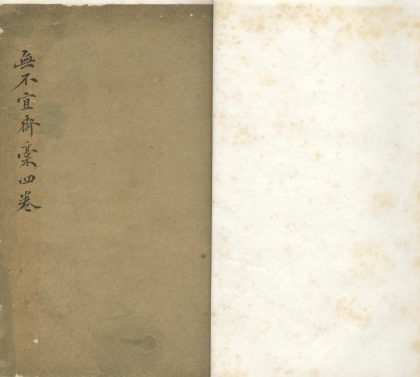 無不宜齋稾四卷